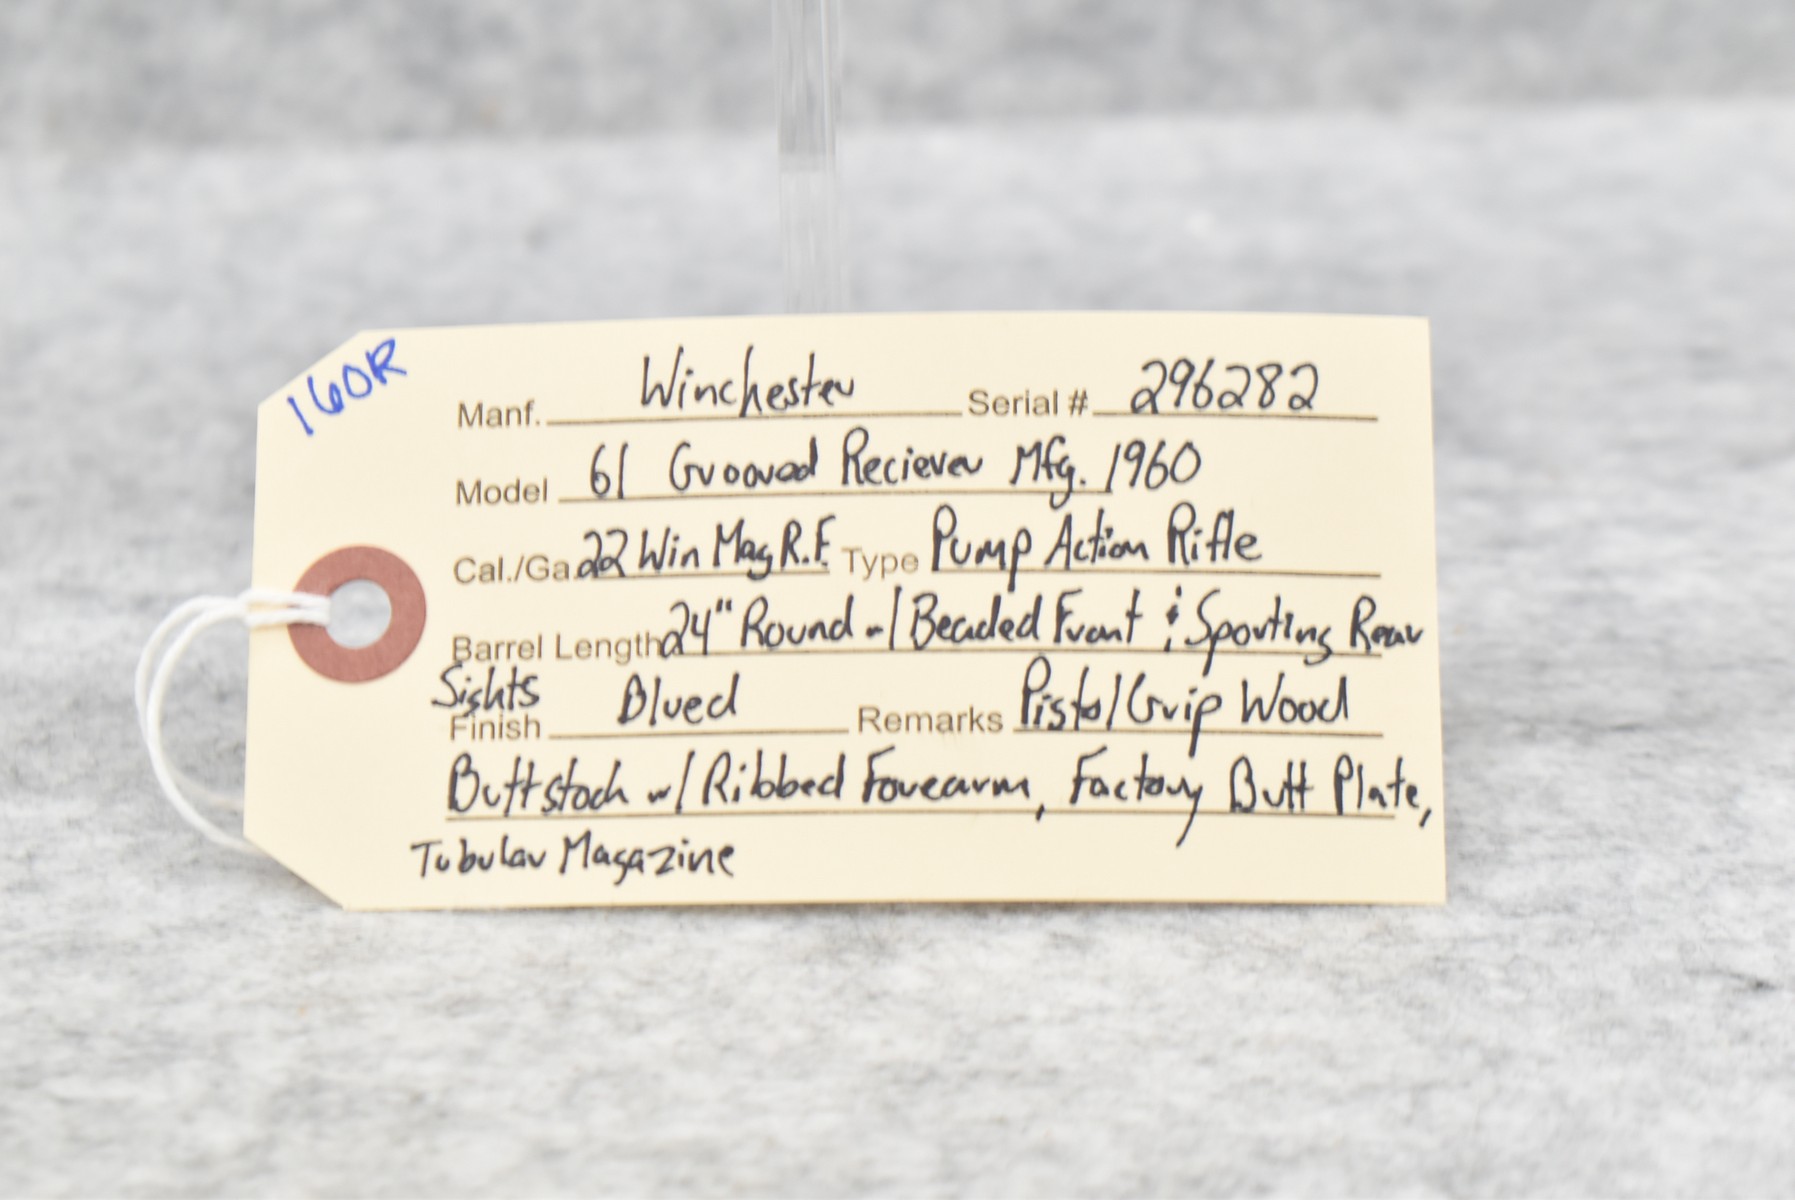 160R
Manf. Winchester Serial # 296282
Model 61 Grooved Reciever Mfg. 1960
Cal./Ga. 22 Win Mag R.F. Type Pump Action Rifle
Barrel Length 24" Round w/ Beaded Front & Sporting Rear
Sights
Finish Blued Remarks Pistol Grip Wood
Buttstock w/ Ribbed Forearm, Factory Butt Plate,
Tubular Magazine